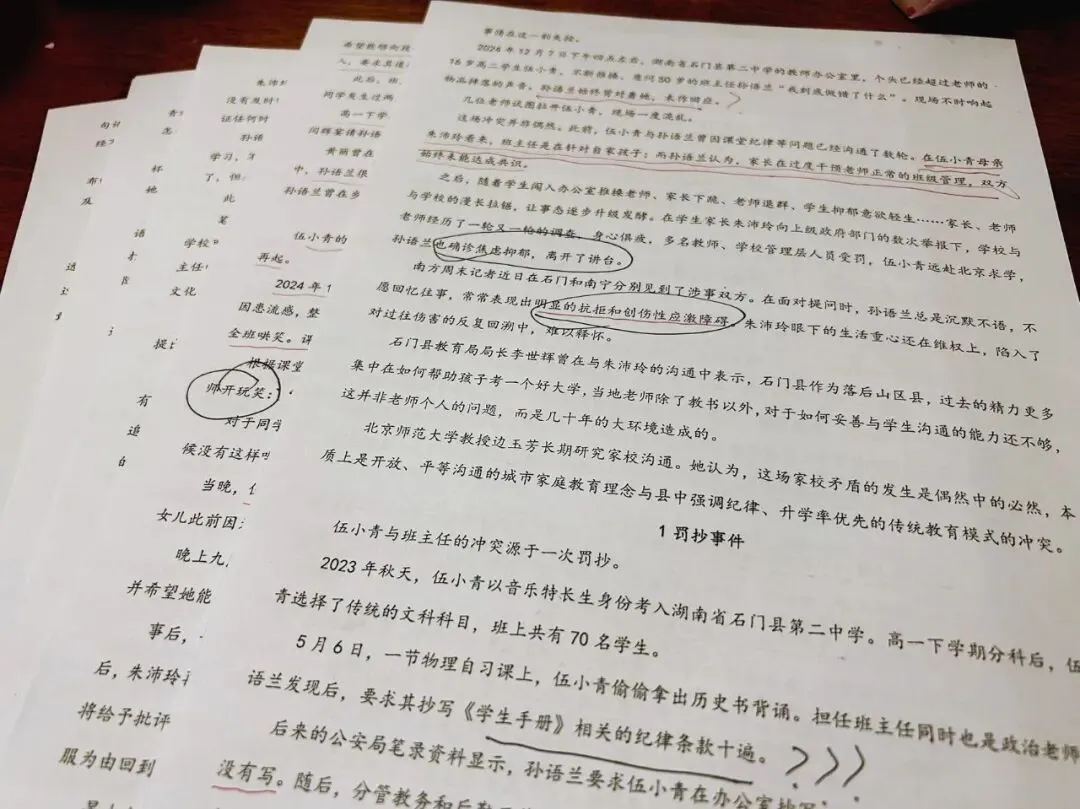 事情在这一刻失控。
2024年12月7日下午四点左右，湖南省石门县第二中学的教师办公室里，个头已经超过老师的
16岁高二学生伍小青，不断推搡、质问50岁的班主任孙语兰“我到底做错了什么”。现场不时响起
物品摔落的声音，孙语兰始终背对着她，未作回应。
几位老师试图拉开伍小青，现场一度混乱。
这场冲突并非偶然。此前，伍小青与孙语兰曾因课堂纪律等问题已经沟通了数轮。在伍小青母亲
朱沛玲看来，班主任是在针对自家孩子；而孙语兰认为，家长在过度干预老师正常的班级管理，双方
始终未能达成共识。
之后，随着学生闯入办公室推搡老师、家长下跪、老师退群、学生抑郁意欲轻生……家长、老师
与学校的漫长拉锯，让事态逐步升级发酵。在学生家长朱沛玲向上级政府部门的数次举报下，学校与
老师经历了一轮又一轮的调查，身心俱疲，多名教师、学校管理层人员受罚，伍小青远赴北京求学，
孙语兰也确诊焦虑抑郁，离开了讲台。
南方周末记者近日在石门和南宁分别见到了涉事双方。在面对提问时，孙语兰总是沉默不语，不
愿回忆往事，常常表现出明显的抗拒和创伤性应激障碍。朱沛玲眼下的生活重心还在维权上，陷入了
对过往伤害的反复回溯中，难以释怀。
石门县教育局局长李世辉曾在与朱沛玲的沟通中表示，石门县作为落后山区县，过去的精力更多
集中在如何帮助孩子考一个好大学，当地老师除了教书以外，对于如何妥善与学生沟通的能力还不够，
这并非老师个人的问题，而是几十年的大环境造成的。
北京师范大学教授边玉芳长期研究家校沟通。她认为，这场家校矛盾的发生是偶然中的必然，本
质上是开放、平等沟通的城市家庭教育理念与县中强调纪律、升学率优先的传统教育模式的冲突。
1 罚抄事件
伍小青与班主任的冲突源于一次罚抄。
2023年秋天，伍小青以音乐特长生身份考入湖南省石门县第二中学。高一下学期分科后，伍
青选择了传统的文科科目，班上共有70名学生。
5月6日，一节物理自习课上，伍小青偷偷拿出历史书背诵。担任班主任同时也是政治老师
语兰发现后，要求其抄写《学生手册》相关的纪律条款十遍。
后来的公安局笔录资料显示，孙语兰要求伍小青在办公室抄写
没有写。随后，分管教务和
希望能够向
人，要求其
此后，
同学发生过两
高一下学
闫辉宴请孙语
黄丽曾在
中，孙语兰很
孙语兰曾在乡
伍小青的
再起。
2024年1
因患流感，整
全班哄笑。详
根据课堂
师开玩笑：
对于同学
候没有这样
当晚，
女儿此前因
晚上九
并希望她能
事后，
后，朱沛玲
将给予批评
服为由回到
朱沛
没有及时
证任何时
孙语
学习，
了，但
此
笔
学校
主任
文化
提
怀
她
语
有
追
布
及